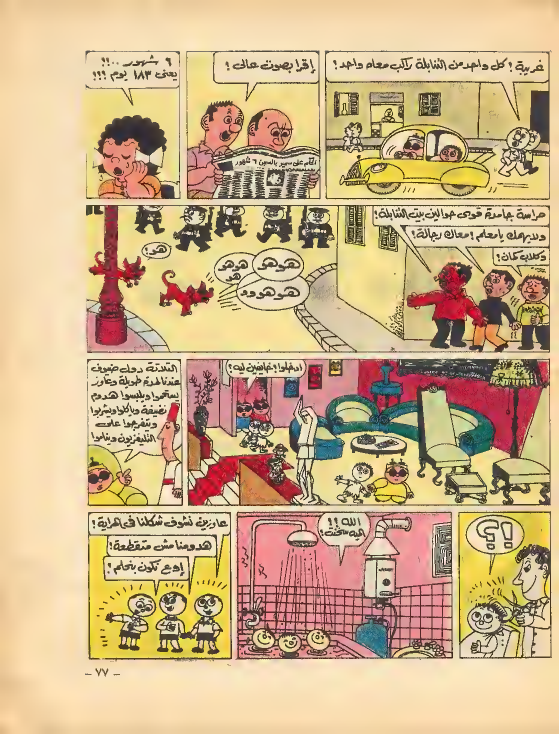 غريبة! كل واحد من التنابلة راكب معاه واحد!
إقرا بصوت عالى!
الحكم على سمير بالسجن ٦ شهور
٦ شهور..!!
يعنى ١٨٣ يوم!!!
حراسة جامدة قوى حوالين بيت التنابلة!
ولا يهمك يا معلم! معاك رجالة!
وكلاب كمان!
هو!
هوهو
هوهو
هوهووو
ادخلوا! خايفين ليه؟
التلاتة دول ضيوف
عندنا لمدة طويلة وعاوز
يستحموا ويلبسوا هدوم
نضيفة وياكلوا ويشربوا
ويتفرجوا على
التليفزيون ويناموا
!؟
الله!!
الميه سخنة!
عايزين نشوف شكلنا فى المراية!
هدومنا مش متقطعة!
إوع تكون بنحلم!
– ٧٧ –